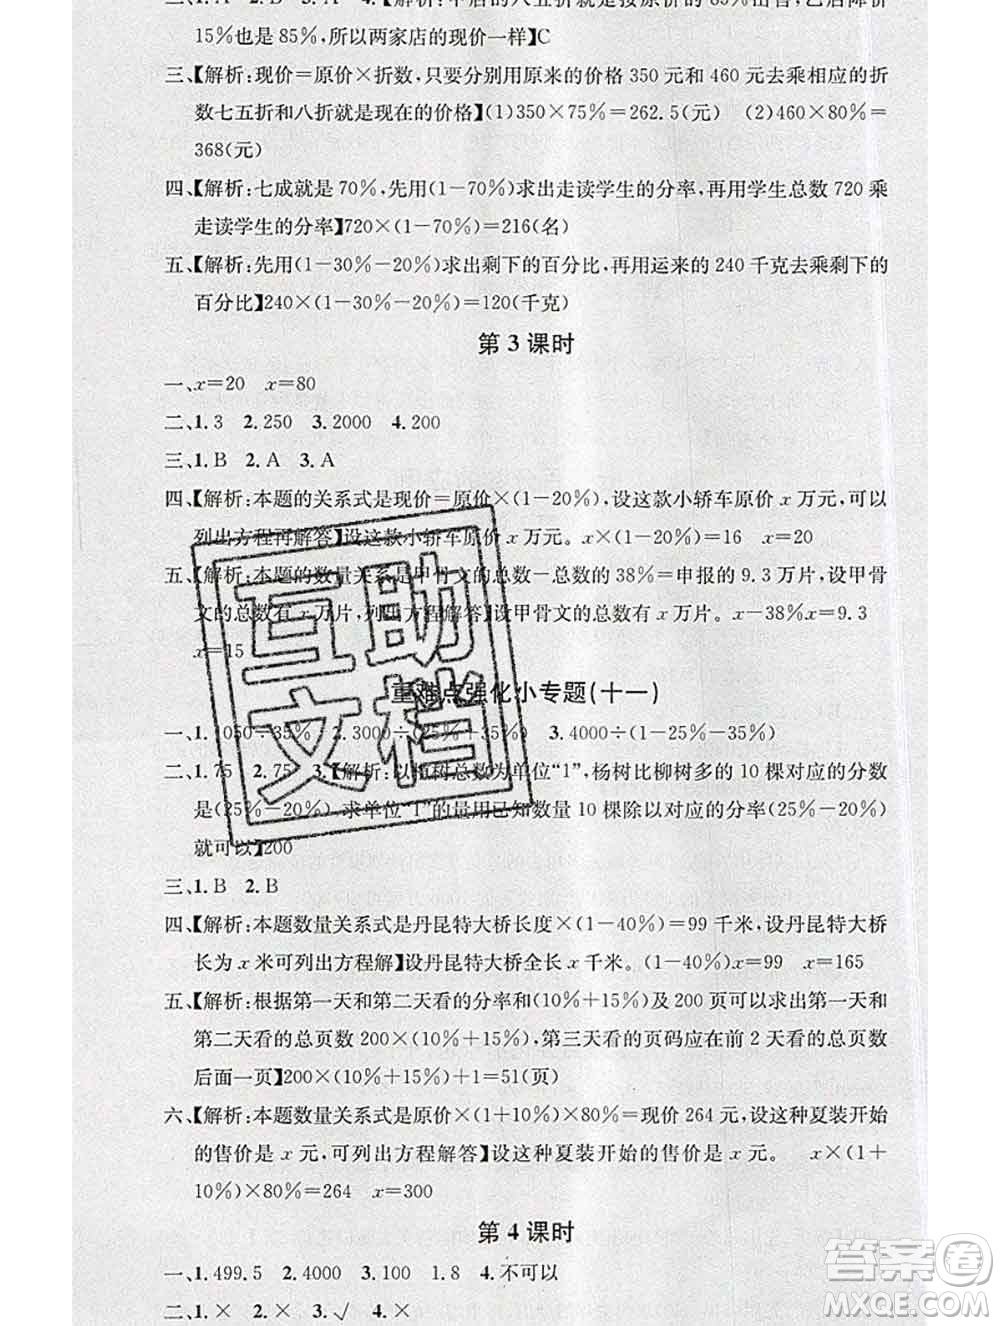 二、1.A 2.A 3.A 4.【解析:甲店的八五折就是按原价的85%出售,乙店降价
15%也是85%,所以两家店的现价一样】C
三、【解析:现价=原价×折数,只要分别用原来的价格350元和460元去乘相应的折
数七五折和八折就是现在的价格】(1)350×75%=262.5(元) (2)460×80%=
368(元)
四、【解析:七成就是70%,先用(1-70%)求出走读学生的分率,再用学生总数720乘
走读学生的分率】720×(1-70%)=216(名)
五、【解析:先用(1-30%-20%)求出剩下的百分比,再用运来的240千克去乘剩下的
百分比】240×(1-30%-20%)=120(千克)
第3课时
一、x=20 x=80
二、1.3 2.250 3.2000 4.200
三、1.B 2.A 3.A
四、【解析:本题的关系式是现价=原价×(1-20%),设这款小轿车原价x万元,可以
列出方程再解答】设这款小轿车原价x万元。x×(1-20%)=16 x=20
五、【解析:本题的数量关系是甲骨文的总数-总数的38%=申报的9.3万片,设甲骨
文的总数有x万片,列出方程解答】设甲骨文的总数有x万片。x-38%x=9.3
x=15
重难点强化小专题(十一)
一、1.1050÷35% 2.3000÷(25%+35%) 3.4000÷(1-25%-35%)
二、1.75 2.75 3.【解析:以植树总数为单位“1”,杨树比柳树多的10棵对应的分数
是(25%-20%),求单位“1”的量用已知数量10棵除以对应的分率(25%-20%)
就可以】200
三、1.B 2.B
四、【解析:本题数量关系式是丹昆特大桥长度×(1-40%)=99千米,设丹昆特大桥
长为x米可列出方程解】设丹昆特大桥全长x千米。(1-40%)x=99 x=165
五、【解析:根据第一天和第二天看的分率和(10%+15%)及200页可以求出第一天和
第二天看的总页数200×(10%+15%),第三天看的页码应在前2天看的总页数
后面一页】200×(10%+15%)+1=51(页)
六、【解析:本题数量关系式是原价×(1+10%)×80%=现价264元,设这种夏装开始
的售价是x元,可列出方程解答】设这种夏装开始的售价是x元。 x×(1+
10%)×80%=264 x=300
第4课时
一、1.499.5 2.4000 3.80 1.8 4.不可以
二、1.× 2.× 3.√ 4.×
互助
文档
答案圈
MXQE.COM